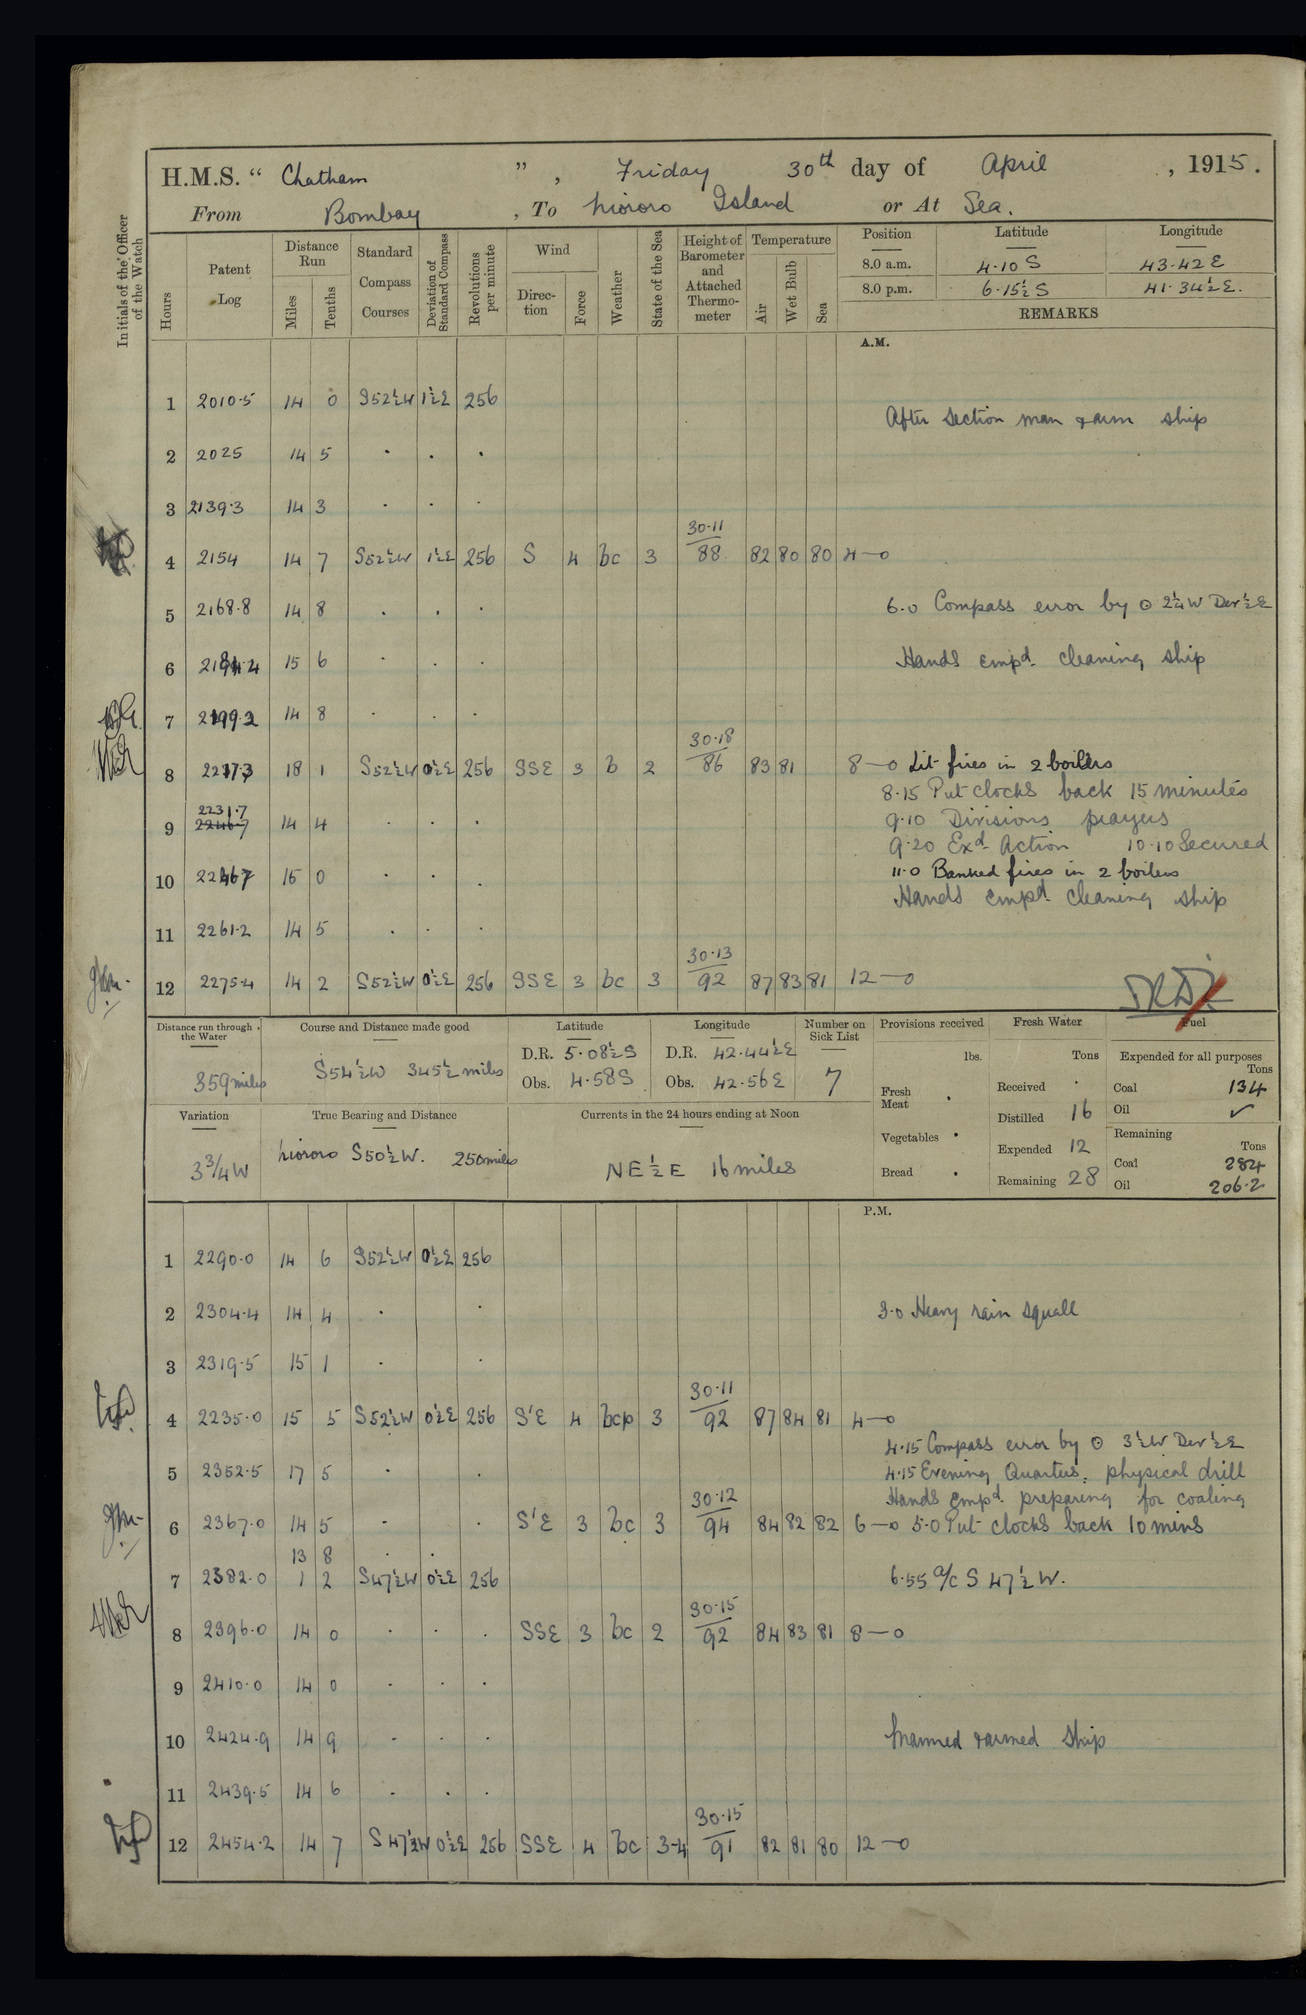 H.M.S. " Chatham ", Friday 30th day of April, 1915.
From Bombay, To Niororo Island or At Sea.
Initials of the Officer of the Watch
Hours
Patent Log
Distance Run
Miles
Tenths
Standard Compass Courses
Deviation of Standard Compass
Revolutions per minute
Wind
Direction
Force
Weather
State of the Sea
Height of Barometer and Attached Thermometer
Temperature
Air
Wet Bulb
Sea
Position Latitude Longitude
8.0 a.m. 4·10 S 43·42 E
8.0 p.m. 6·15½ S 41·34½ E.
REMARKS
A.M.
1 2010·5 14 0 S52½W 1½E 256
After section man & arm ship
2 2025 14 5 · · ·
3 2139·3 14 3 · · ·
4 2154 14 7 S52½W 1½E 256 S 4 bc 3 30·11 88 82 80 80 4—0
5 2168·8 14 8 · · · 6·0 Compass error by ⊙ 2¼W Dev ½E
6 2184·4 15 6 · · · Hands empd. cleaning ship
7 2199·2 14 8 · · ·
8 2217·3 18 1 S52½W 0½E 256 SSE 3 b 2 30·18 86 83 81 8—0 Lit fires in 2 boilers
8·15 Put clocks back 15 minutes
9 2231·7 14 4 · · · 9·10 Divisions prayers
9·20 Exd. Action 10·10 Secured
10 2246·7 15 0 · · · 11·0 Banked fires in 2 boilers
Hands empd. cleaning ship
11 2261·2 14 5 · · ·
12 2275·4 14 2 S52½W 0½E 256 SSE 3 bc 3 30·13 92 87 83 81 12—0
Distance run through the Water
359 miles
Course and Distance made good
S54½W 345½ miles
Latitude
D.R. 5·08½S
Obs. 4·58S
Longitude
D.R. 42·44½E
Obs. 42·56E
Number on Sick List
7
Provisions received
lbs.
Fresh Meat ·
Vegetables ·
Bread ·
Fresh Water
Tons
Received ·
Distilled 16
Expended 12
Remaining 28
Fuel
Expended for all purposes
Tons
Coal 134
Oil ✓
Remaining
Tons
Coal 284
Oil 206·2
Variation
3¾W
True Bearing and Distance
Niororo S50½W. 250 miles
Currents in the 24 hours ending at Noon
NE½E 16 miles
P.M.
1 2290·0 14 6 S52½W 0½E 256
2 2304·4 14 4 · · 3·0 Heavy rain squall
3 2319·5 15 1 · ·
4 2235·0 15 5 S52½W 0½E 256 S'E 4 bcp 3 30·11 92 87 84 81 4—0
4·15 Compass error by ⊙ 3½W Dev ½E
5 2352·5 17 5 · · 4·15 Evening Quarters, physical drill
Hands empd. preparing for coaling
6 2367·0 14 5 · · S'E 3 bc 3 30·12 94 84 82 82 6—0 5·0 Put clocks back 10 mins
13 8 · ·
7 2382·0 1 2 S47½W 0½E 256 6·55 a/c S 47½ W.
8 2396·0 14 0 · · · SSE 3 bc 2 30·15 92 84 83 81 8—0
9 2410·0 14 0 · · ·
10 2424·9 14 9 · · · Manned & armed ship
11 2439·5 14 6 · · ·
12 2454·2 14 7 S47½W 0½E 256 SSE 4 bc 3-4 30·15 91 82 81 80 12—0